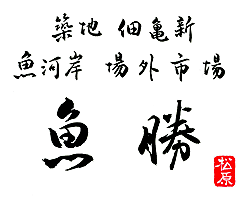 築地 佃亀新
魚河岸 場外市場
魚勝
松原